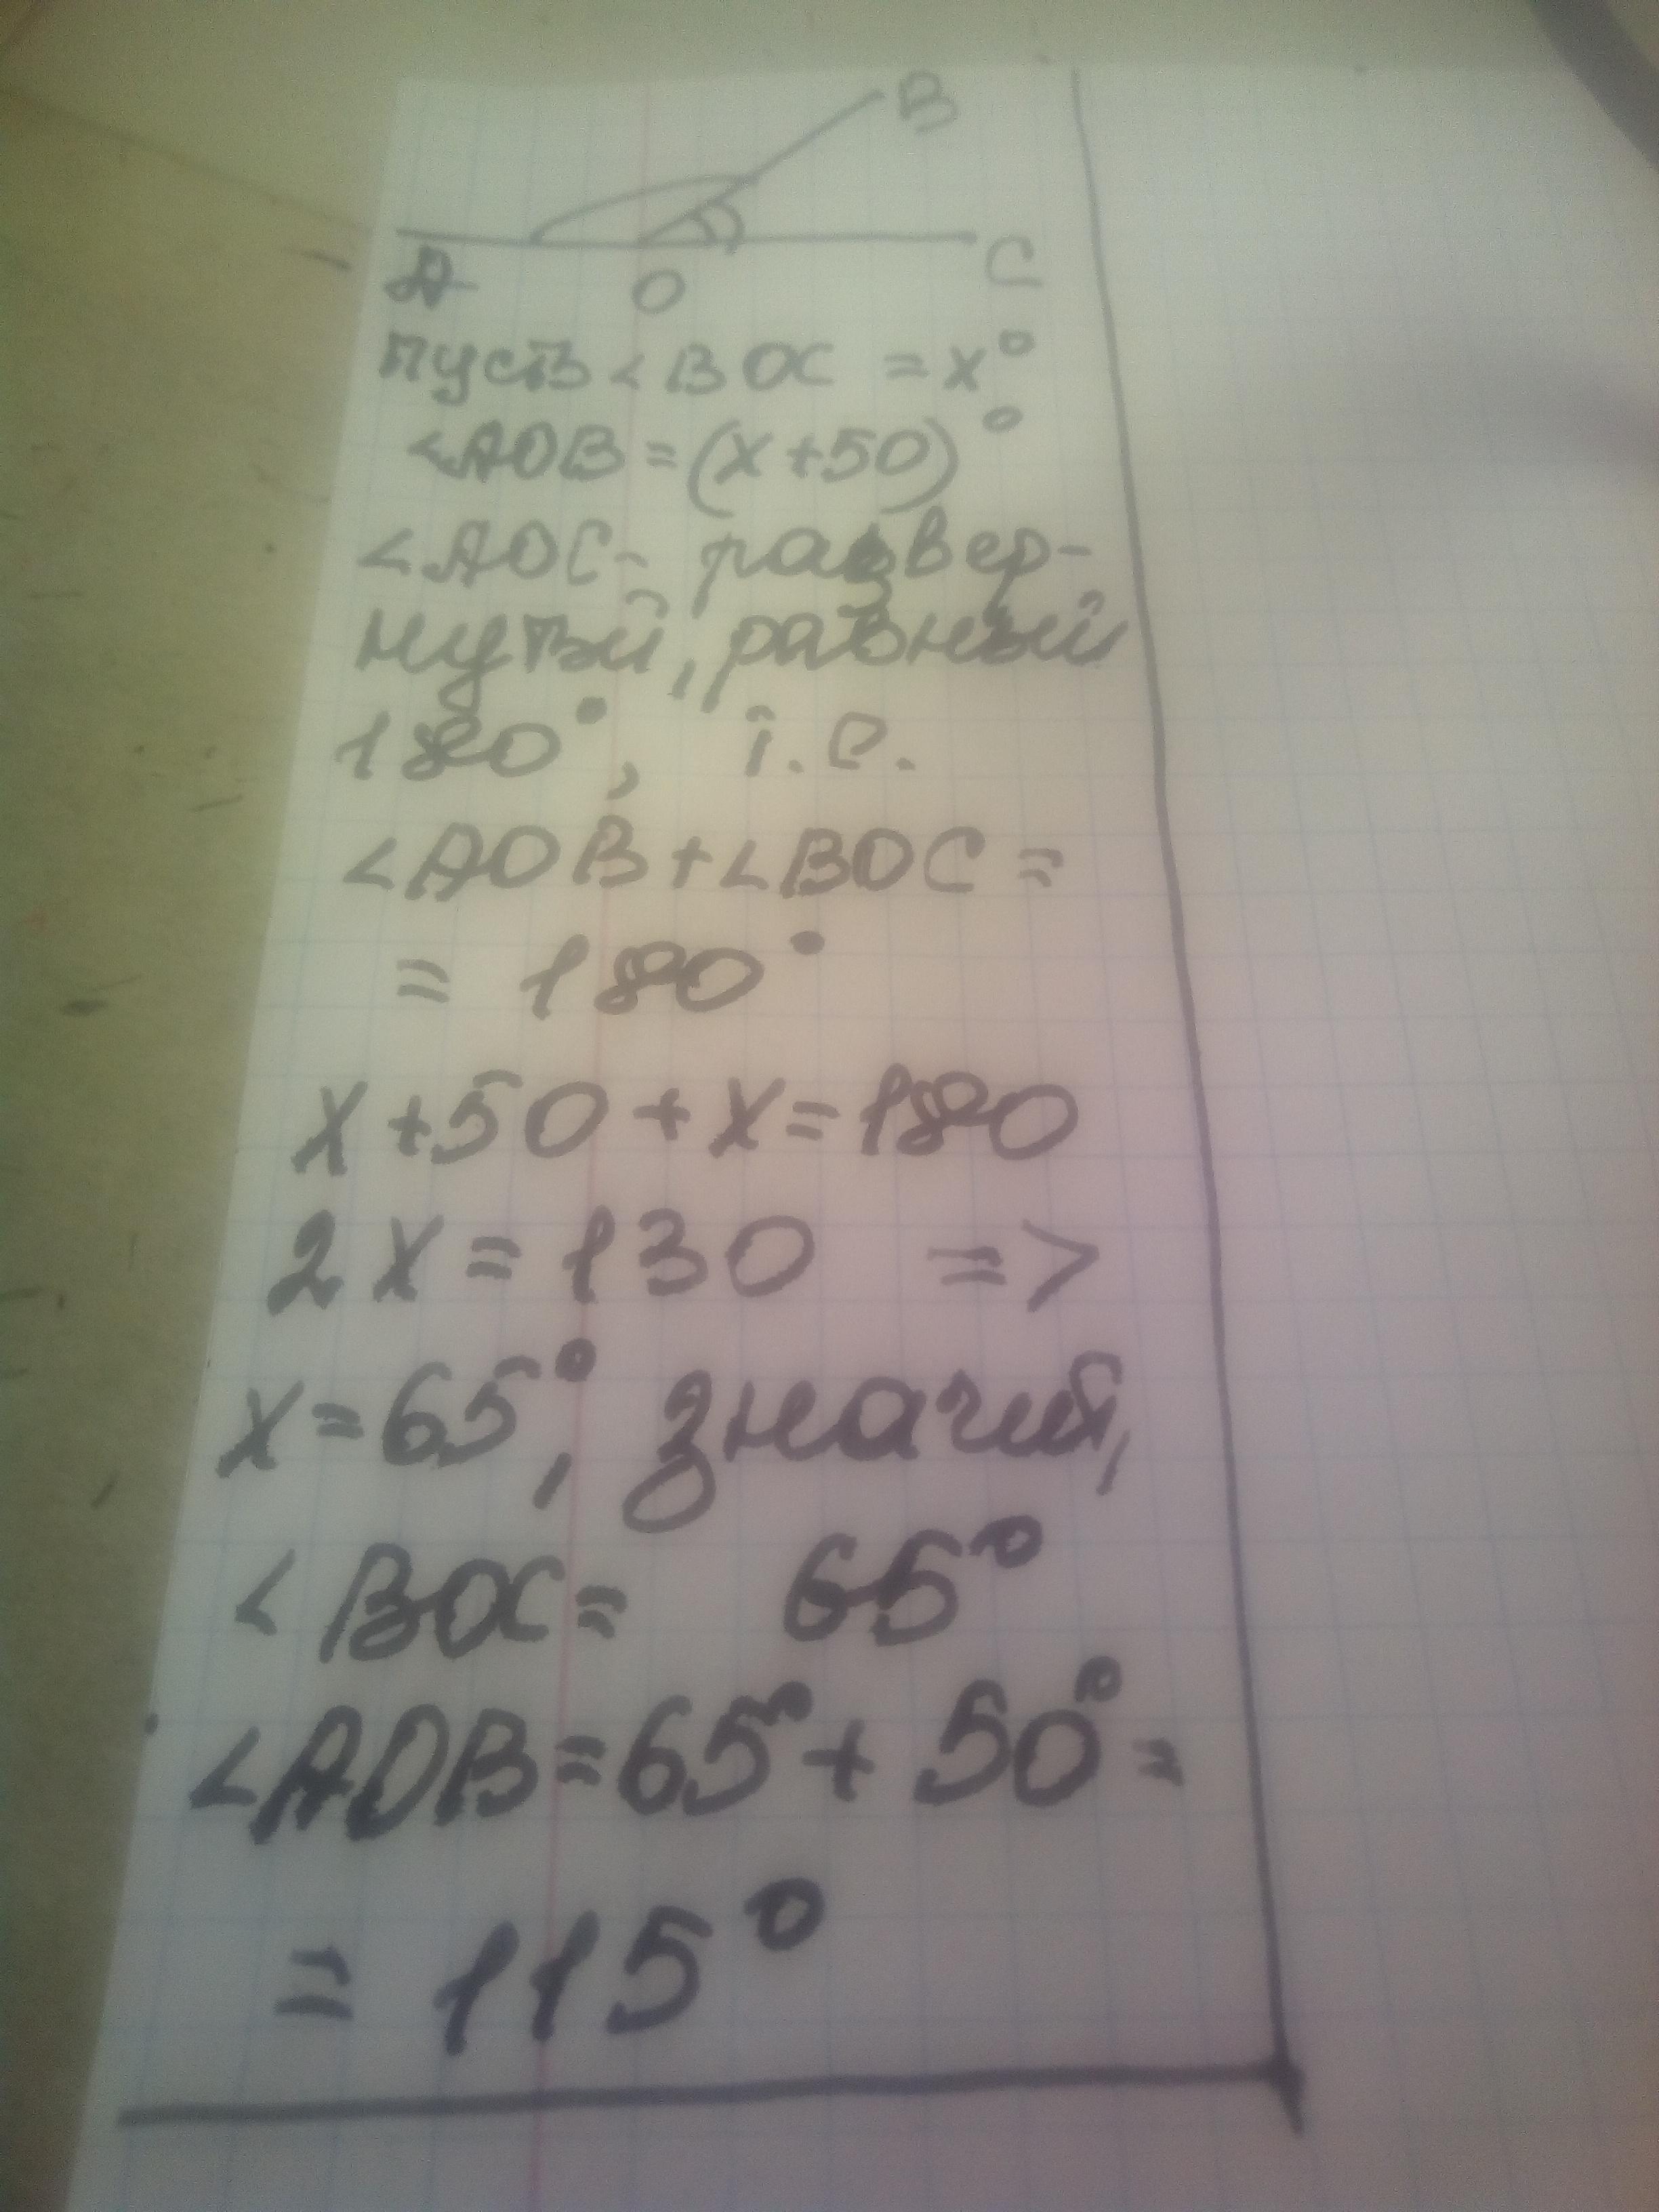 B
A O C
пусть <BOC = x°
<AOB = (x+50)°
<AOC- развер-
нутый, равный
180°, т.е.
<AOB+<BOC =
= 180°
x+50+x=180
2x=130 =>
x=65°, значит,
<BOC= 65°
<AOB=65°+50°=
= 115°